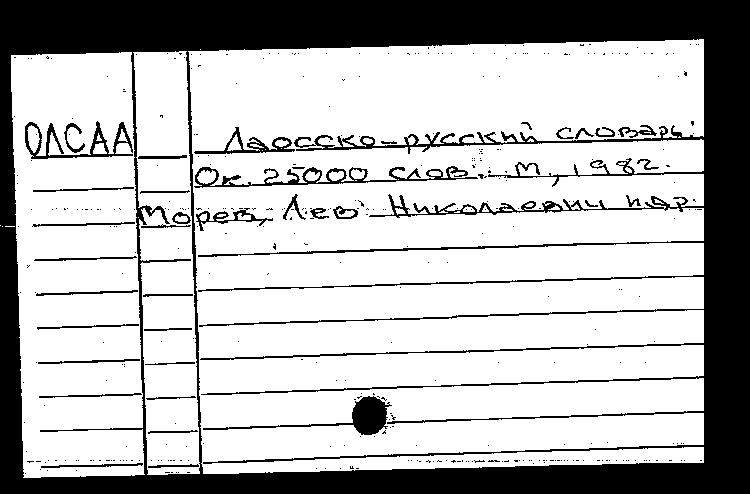 ОЛСАА Лаосско-русский словарь:
Ок. 25000 слов. М., 1982.
Морев, Лев Николаевич и др.